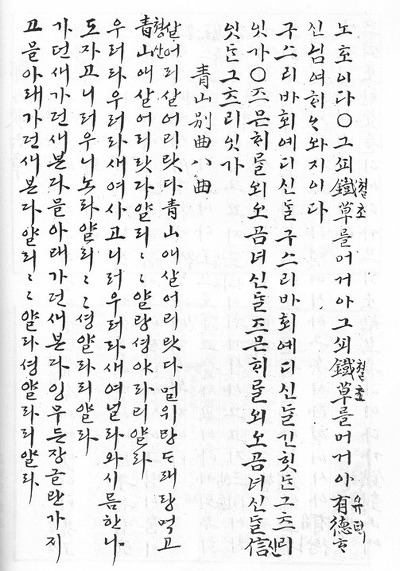 노호이다○그쇠鐵草를머거아그쇠鐵草를머거아有德ᄒᆞ
철초 철초 유덕
신님여ᄒᆡᄋᆞ와지이다
구스리바회예디신ᄃᆞᆯ구스리바회예디신ᄃᆞᆯ긴힛ᄃᆞᆫ그츠리
잇가○즈믄ᄒᆡ를외오곰녀신ᄃᆞᆯ즈믄ᄒᆡ를외오곰녀신ᄃᆞᆯ信
신
잇ᄃᆞᆫ그츠리잇가
靑山別曲八曲
살어리살어리랏다靑山애살어리랏다멀위랑ᄃᆞ래랑먹고
靑山애살어리랏다얄리〻〻얄랑셩야라리얄라
쳥산
우러라우러라새여자고니러우러라새여널라와시름한나
도자고니러우니노라얄리〻〻셩얄라리얄라
가던새가던새본다믈아래가던새본다잉무든장글란가지
고믈아래가던새본다얄리〻〻얄라셩얄라리얄라